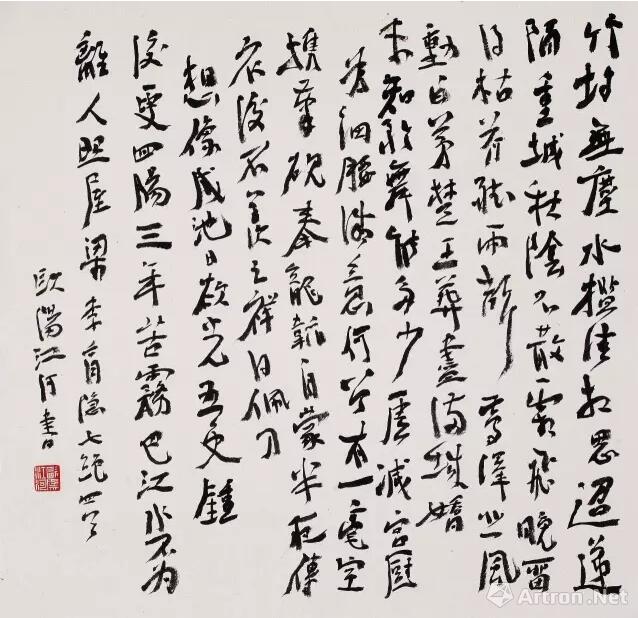 竹塢無塵水檻清相思迢遞
隔重城秋陰不散霜飛晚留
得枯荷聽雨聲 夢澤悲風
動白茅楚王葬盡滿城嬌
未知歌舞能多少虛減宮廚
為細腰微意何曾有一毫空
攜筆硯奉龍韜自蒙半夜傳
衣後不羨王祥得佩刀
想像咸池日欲光五更鐘
後更回腸三年苦霧巴江水不為
離人照屋梁 李商隱七絕四首
歐陽江河書
Artron.Net